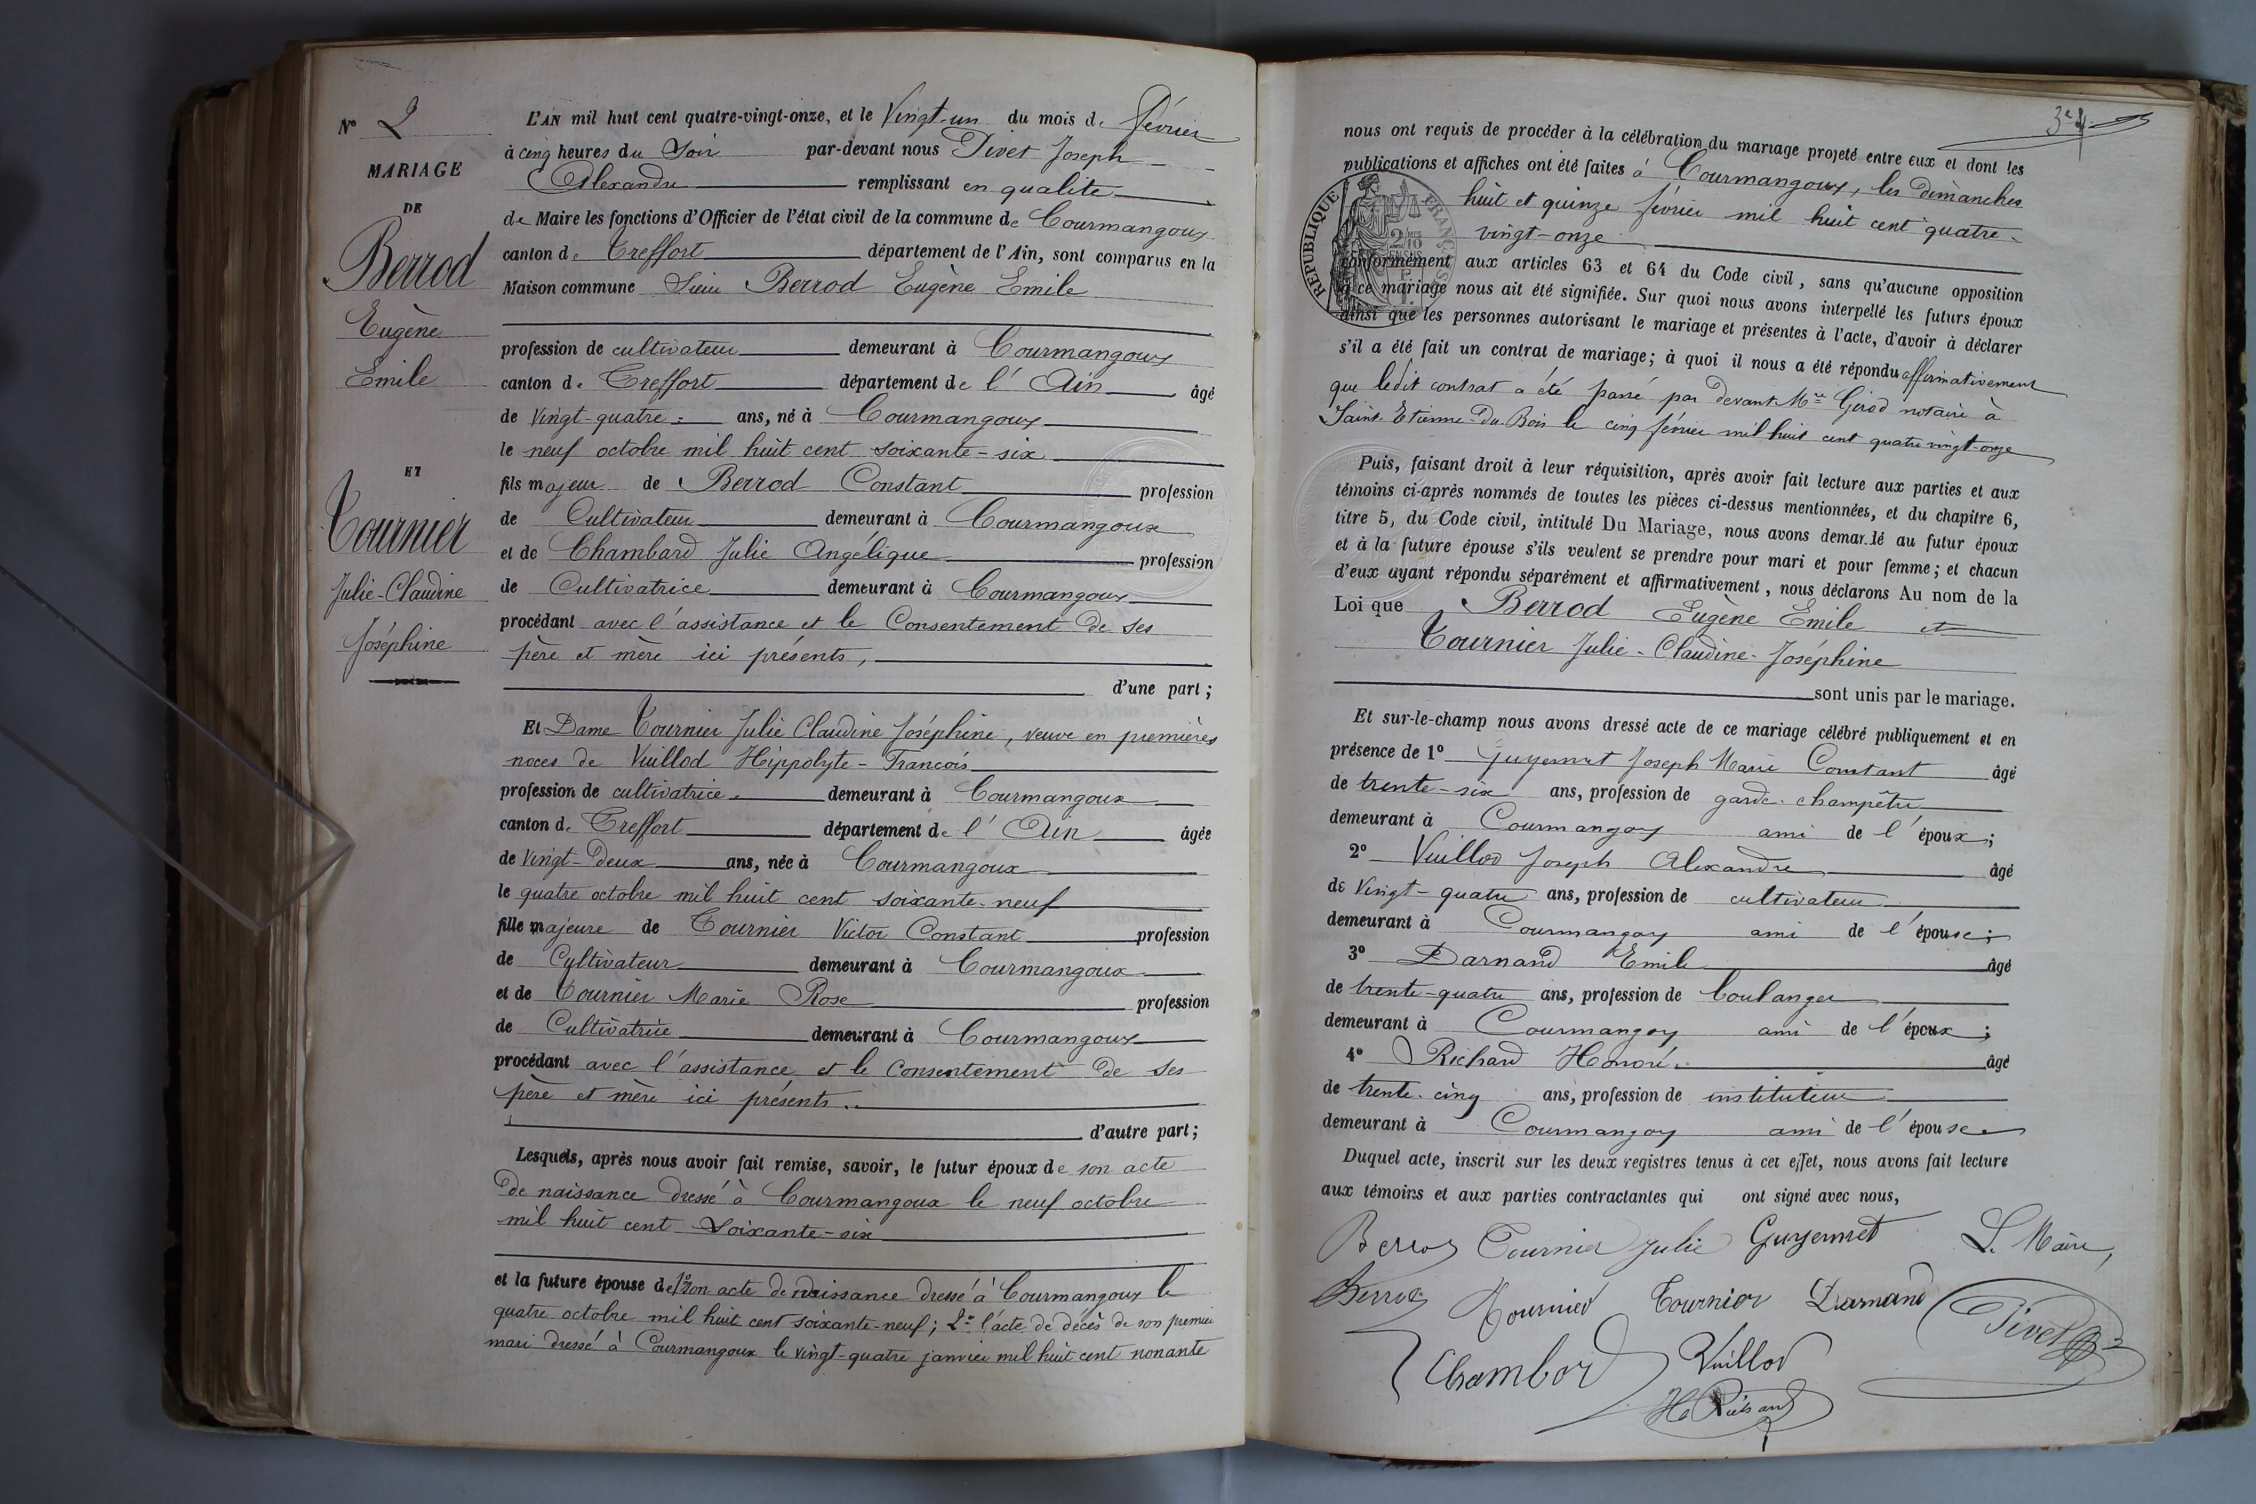 Nº 2
MARIAGE
DE
Berrod
Eugène
Emile
ET
Tournier
Julie-Claudine
Joséphine
L'AN mil huit cent quatre-vingt-onze, et le Vingt-un du mois de Février
à cinq heures du Soir par-devant nous Pivet Joseph
Alexandre remplissant en qualité
de Maire les fonctions d'Officier de l'état civil de la commune de Courmangoux
canton de Treffort département de l'Ain, sont comparus en la
Maison commune Sieur Berrod Eugène Emile
profession de cultivateur demeurant à Courmangoux
canton de Treffort département de l'Ain âgé
de Vingt-quatre ans, né à Courmangoux
le neuf octobre mil huit cent soixante-six
fils majeur de Berrod Constant profession
de Cultivateur demeurant à Courmangoux
et de Chambard Julie Angélique profession
de Cultivatrice demeurant à Courmangoux
procédant avec l'assistance et le Consentement de ses
père et mère ici présents,
d'une part;
Et Dame Tournier Julie Claudine Joséphine, veuve en premières
noces de Vuillod Hippolyte-François
profession de cultivatrice demeurant à Courmangoux
canton de Treffort département de l'Ain âgée
de Vingt-deux ans, née à Courmangoux
le quatre octobre mil huit cent soixante-neuf
fille majeure de Tournier Victor Constant profession
de Cultivateur demeurant à Courmangoux
et de Tournier Marie Rose profession
de Cultivatrice demeurant à Courmangoux
procédant avec l'assistance et le consentement de ses
père et mère ici présents.
d'autre part;
Lesquels, après nous avoir fait remise, savoir, le futur époux de son acte
de naissance dressé à Courmangoux le neuf octobre
mil huit cent soixante-six
et la future épouse de 1º son acte de naissance dressé à Courmangoux le
quatre octobre mil huit cent soixante-neuf; 2º l'acte de décès de son premier
mari dressé à Courmangoux le vingt-quatre janvier mil huit cent nonante
nous ont requis de procéder à la célébration du mariage projeté entre eux et dont les
publications et affiches ont été faites à Courmangoux, les dimanches
huit et quinze février mil huit cent quatre-
vingt-onze
RÉPUBLIQUE FRANÇAISE
conformément aux articles 63 et 64 du Code civil, sans qu'aucune opposition
à ce mariage nous ait été signifiée. Sur quoi nous avons interpellé les futurs époux
ainsi que les personnes autorisant le mariage et présentes à l'acte, d'avoir à déclarer
s'il a été fait un contrat de mariage; à quoi il nous a été répondu affirmativement
que ledit contrat a été passé par devant Me Girod notaire à
Saint-Etienne-du-Bois le cinq février mil huit cent quatre vingt-onze
Puis, faisant droit à leur réquisition, après avoir fait lecture aux parties et aux
témoins ci-après nommés de toutes les pièces ci-dessus mentionnées, et du chapitre 6,
titre 5, du Code civil, intitulé Du Mariage, nous avons demandé au futur époux
et à la future épouse s'ils veulent se prendre pour mari et pour femme; et chacun
d'eux ayant répondu séparément et affirmativement, nous déclarons Au nom de la
Loi que Berrod Eugène Emile et
Tournier Julie-Claudine-Joséphine
sont unis par le mariage.
Et sur-le-champ nous avons dressé acte de ce mariage célébré publiquement et en
présence de 1º Guyennet Joseph Marie Constant âgé
de trente-six ans, profession de garde-champêtre
demeurant à Courmangoux ami de l'époux;
2º Vuillod Joseph Alexandre âgé
de Vingt-quatre ans, profession de cultivateur
demeurant à Courmangoux ami de l'épouse;
3º Darnand Emile âgé
de trente-quatre ans, profession de boulanger
demeurant à Courmangoux ami de l'époux;
4º Richard Honoré âgé
de trente-cinq ans, profession de instituteur
demeurant à Courmangoux ami de l'épouse
Duquel acte, inscrit sur les deux registres tenus à cet effet, nous avons fait lecture
aux témoins et aux parties contractantes qui ont signé avec nous,
Berrod Tournier Julie Guyennet Le Maire,
Berrod Tournier Tournier Darnand Pivet
Chambard Vuillod
H Richard